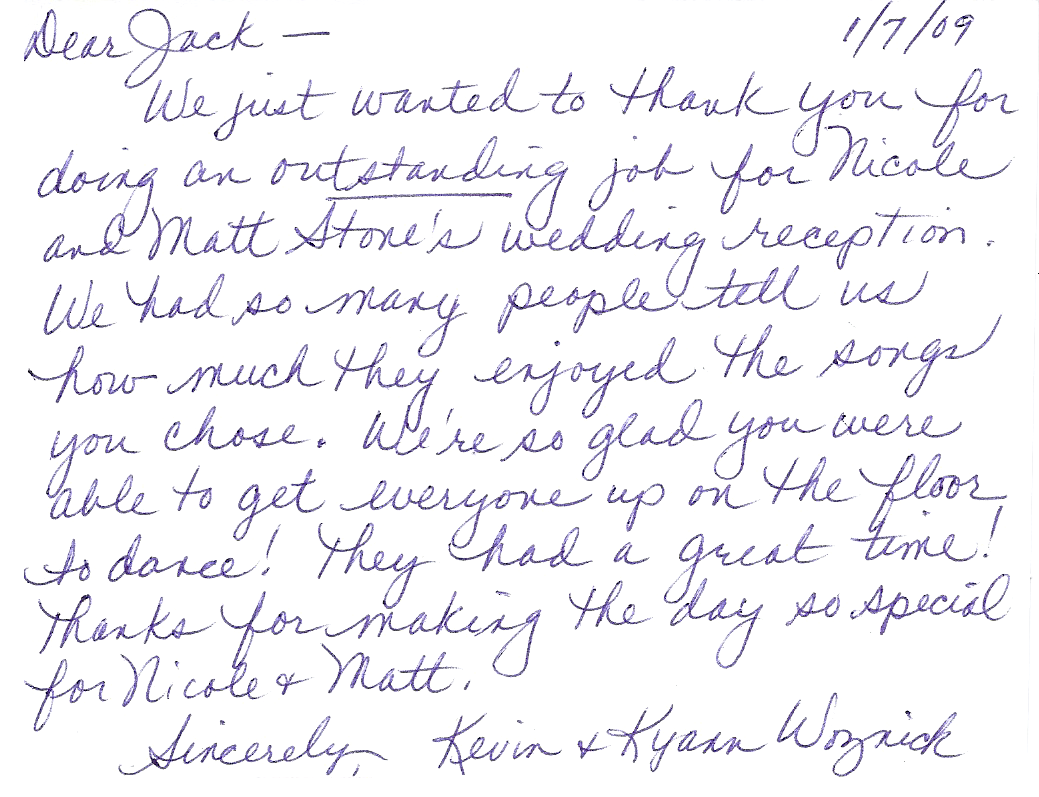 Dear Jack — 1/7/09
We just wanted to thank you for
doing an outstanding job for Nicole
and Matt Stone's wedding reception.
We had so many people tell us
how much they enjoyed the songs
you chose. We're so glad you were
able to get everyone up on the floor
to dance! They had a great time!
Thanks for making the day so special
for Nicole & Matt.
Sincerely, Kevin & Kyann Woznick